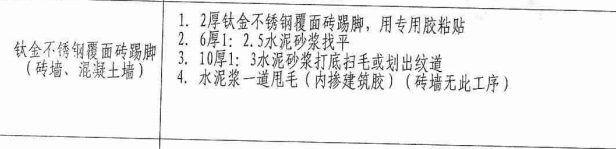 钛金不锈钢覆面砖踢脚
（砖墙、混凝土墙）
1. 2厚钛金不锈钢覆面砖踢脚，用专用胶粘贴
2. 6厚1：2.5水泥砂浆找平
3. 10厚1：3水泥砂浆打底扫毛或划出纹道
4. 水泥浆一道甩毛（内掺建筑胶）（砖墙无此工序）